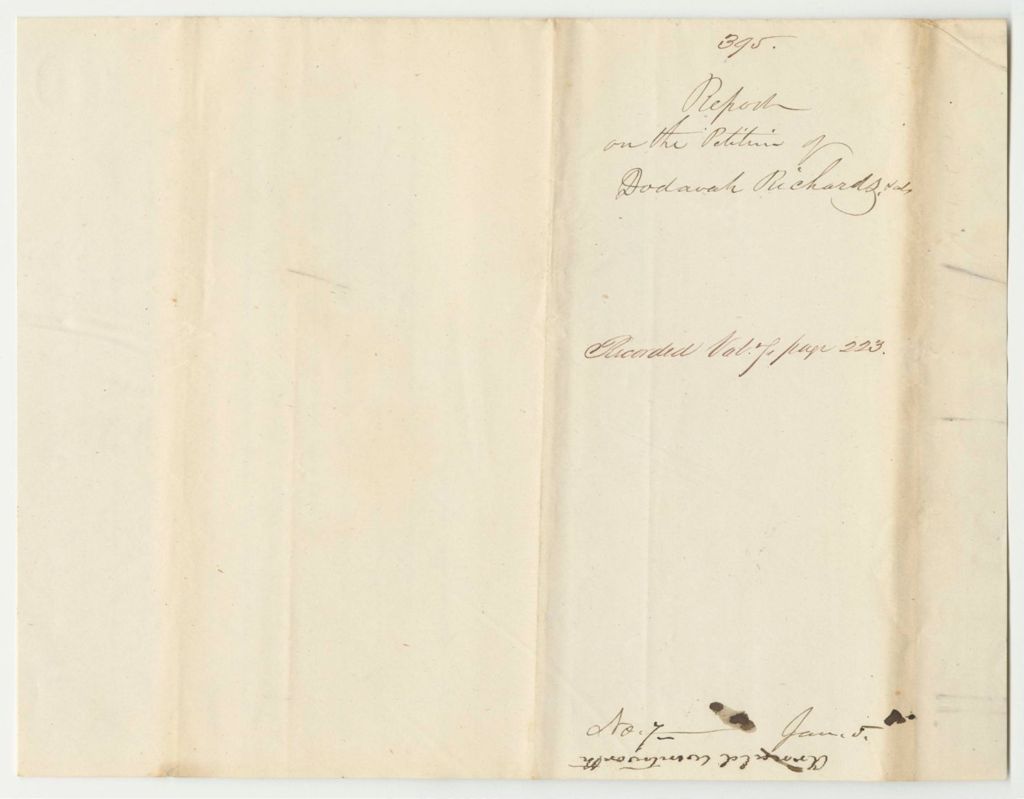 395.
Report
on the Petition of
Dodavah Richards, & als
Recorded Vol. 7, page 223.
No. 7 Jan. 5.
Wentworth